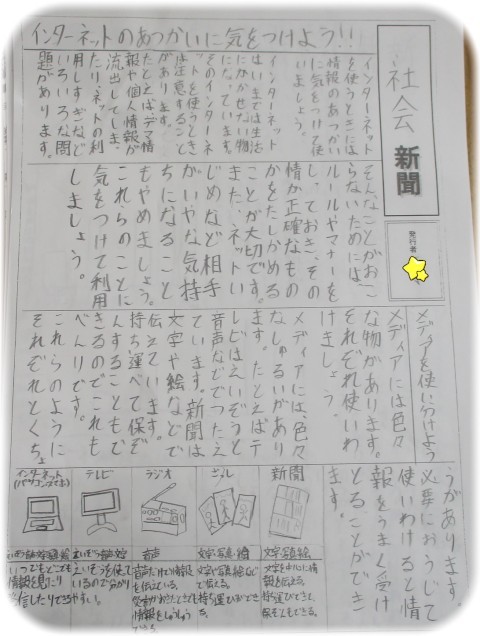 インターネットのあつかいに気をつけよう!!
社会
新聞
発行者
インターネット
を使うときには
情報のあつかい
に気をつけて使
いましょう。
インターネット
はいまでは生活
にかかせない物
になっています。
そのインターネ
ットを使うとき
は注意すること
があります。
たとえばデマ情
報や個人情報が
流出してしまっ
たり、ネットの利
用しすぎなど
いろいろな問
題があります。
そんなことがおこ
らないためには、
ルールやマナーを
しっておき、その
情が正確なもの
かをたしかめる
ことが大切です。
また、ネットい
じめなど相手
がいやな気持
ちになること
もやめましょう。
これらのことに
気をつけて利用
しましょう。
メディアを使い分けよう
メディアには色々
な物があります。
それぞれ使いわ
けましょう。
メディアには、色々
なしゅるいがあり
ます。たとえばテ
レビはえいぞうと
音声などでつたえ
ています。新聞は
文字や絵などで
伝えています。
持ち運べて保ぞ
んすることもで
きるのでこれも
べんりです。
これらのように
それぞれとくちょ
うがあります。
必要におうじて
使いわけると情
報をうまく受け
とることができ
ます。
新聞
文字・写真・絵
文字を中心に情
報を伝える。
持ち運びできて、
保ぞんもできる。
文字・写真・絵など
で伝える。
持ち運びができ
る。
ラジオ
音声
音声だけで情報
を伝えている。
情報を
テレビ
えいぞうを使って
いるので分かり
やすい。
インターネット
いつでもどこでも
情報を見たり